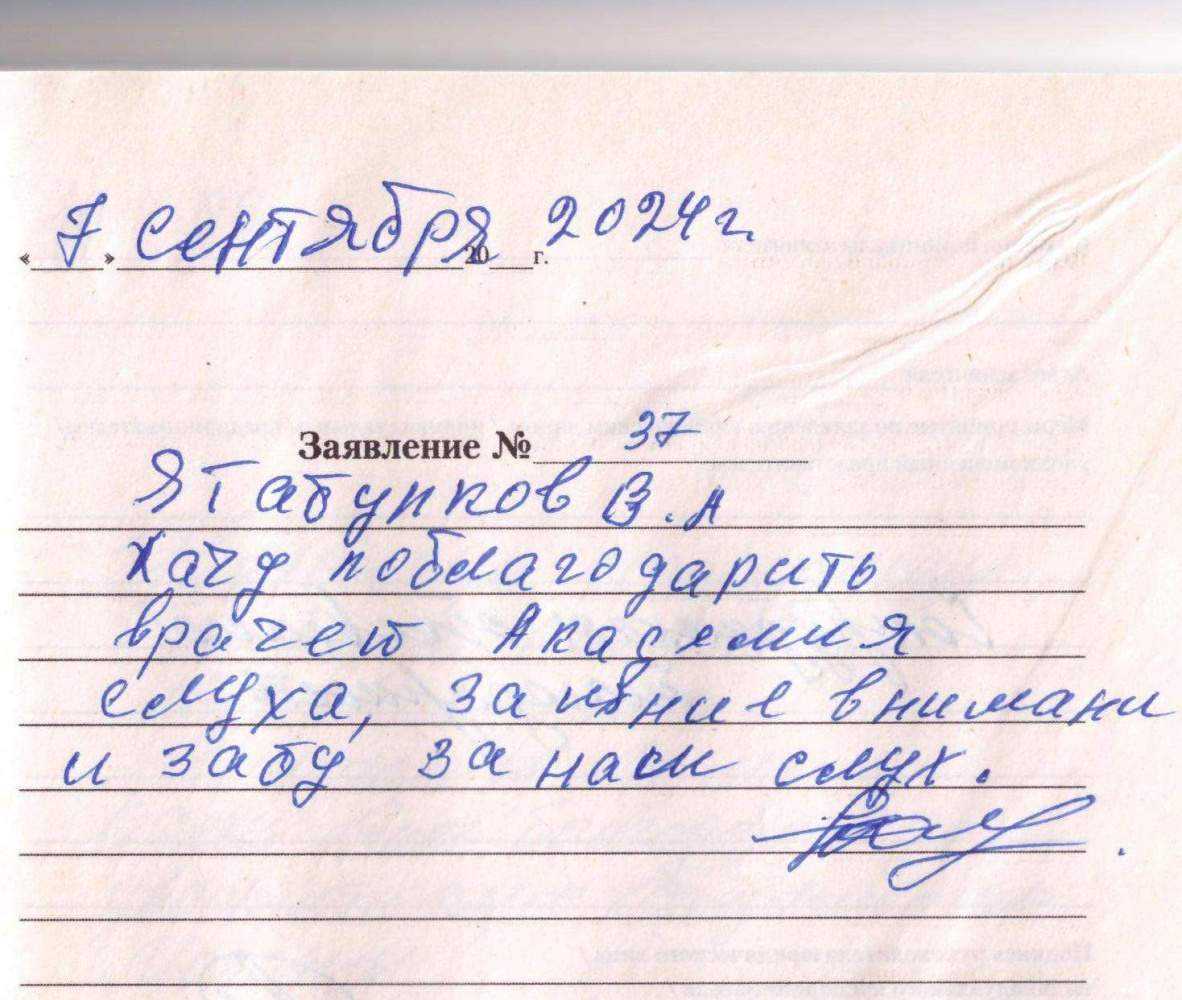 « 7 » сентября 20 2024г. г.
Заявление № 37
Я Табунков В.А
Хачу поблагодарить
врачей Академия
слуха, за внимани
и забу за наш слух.